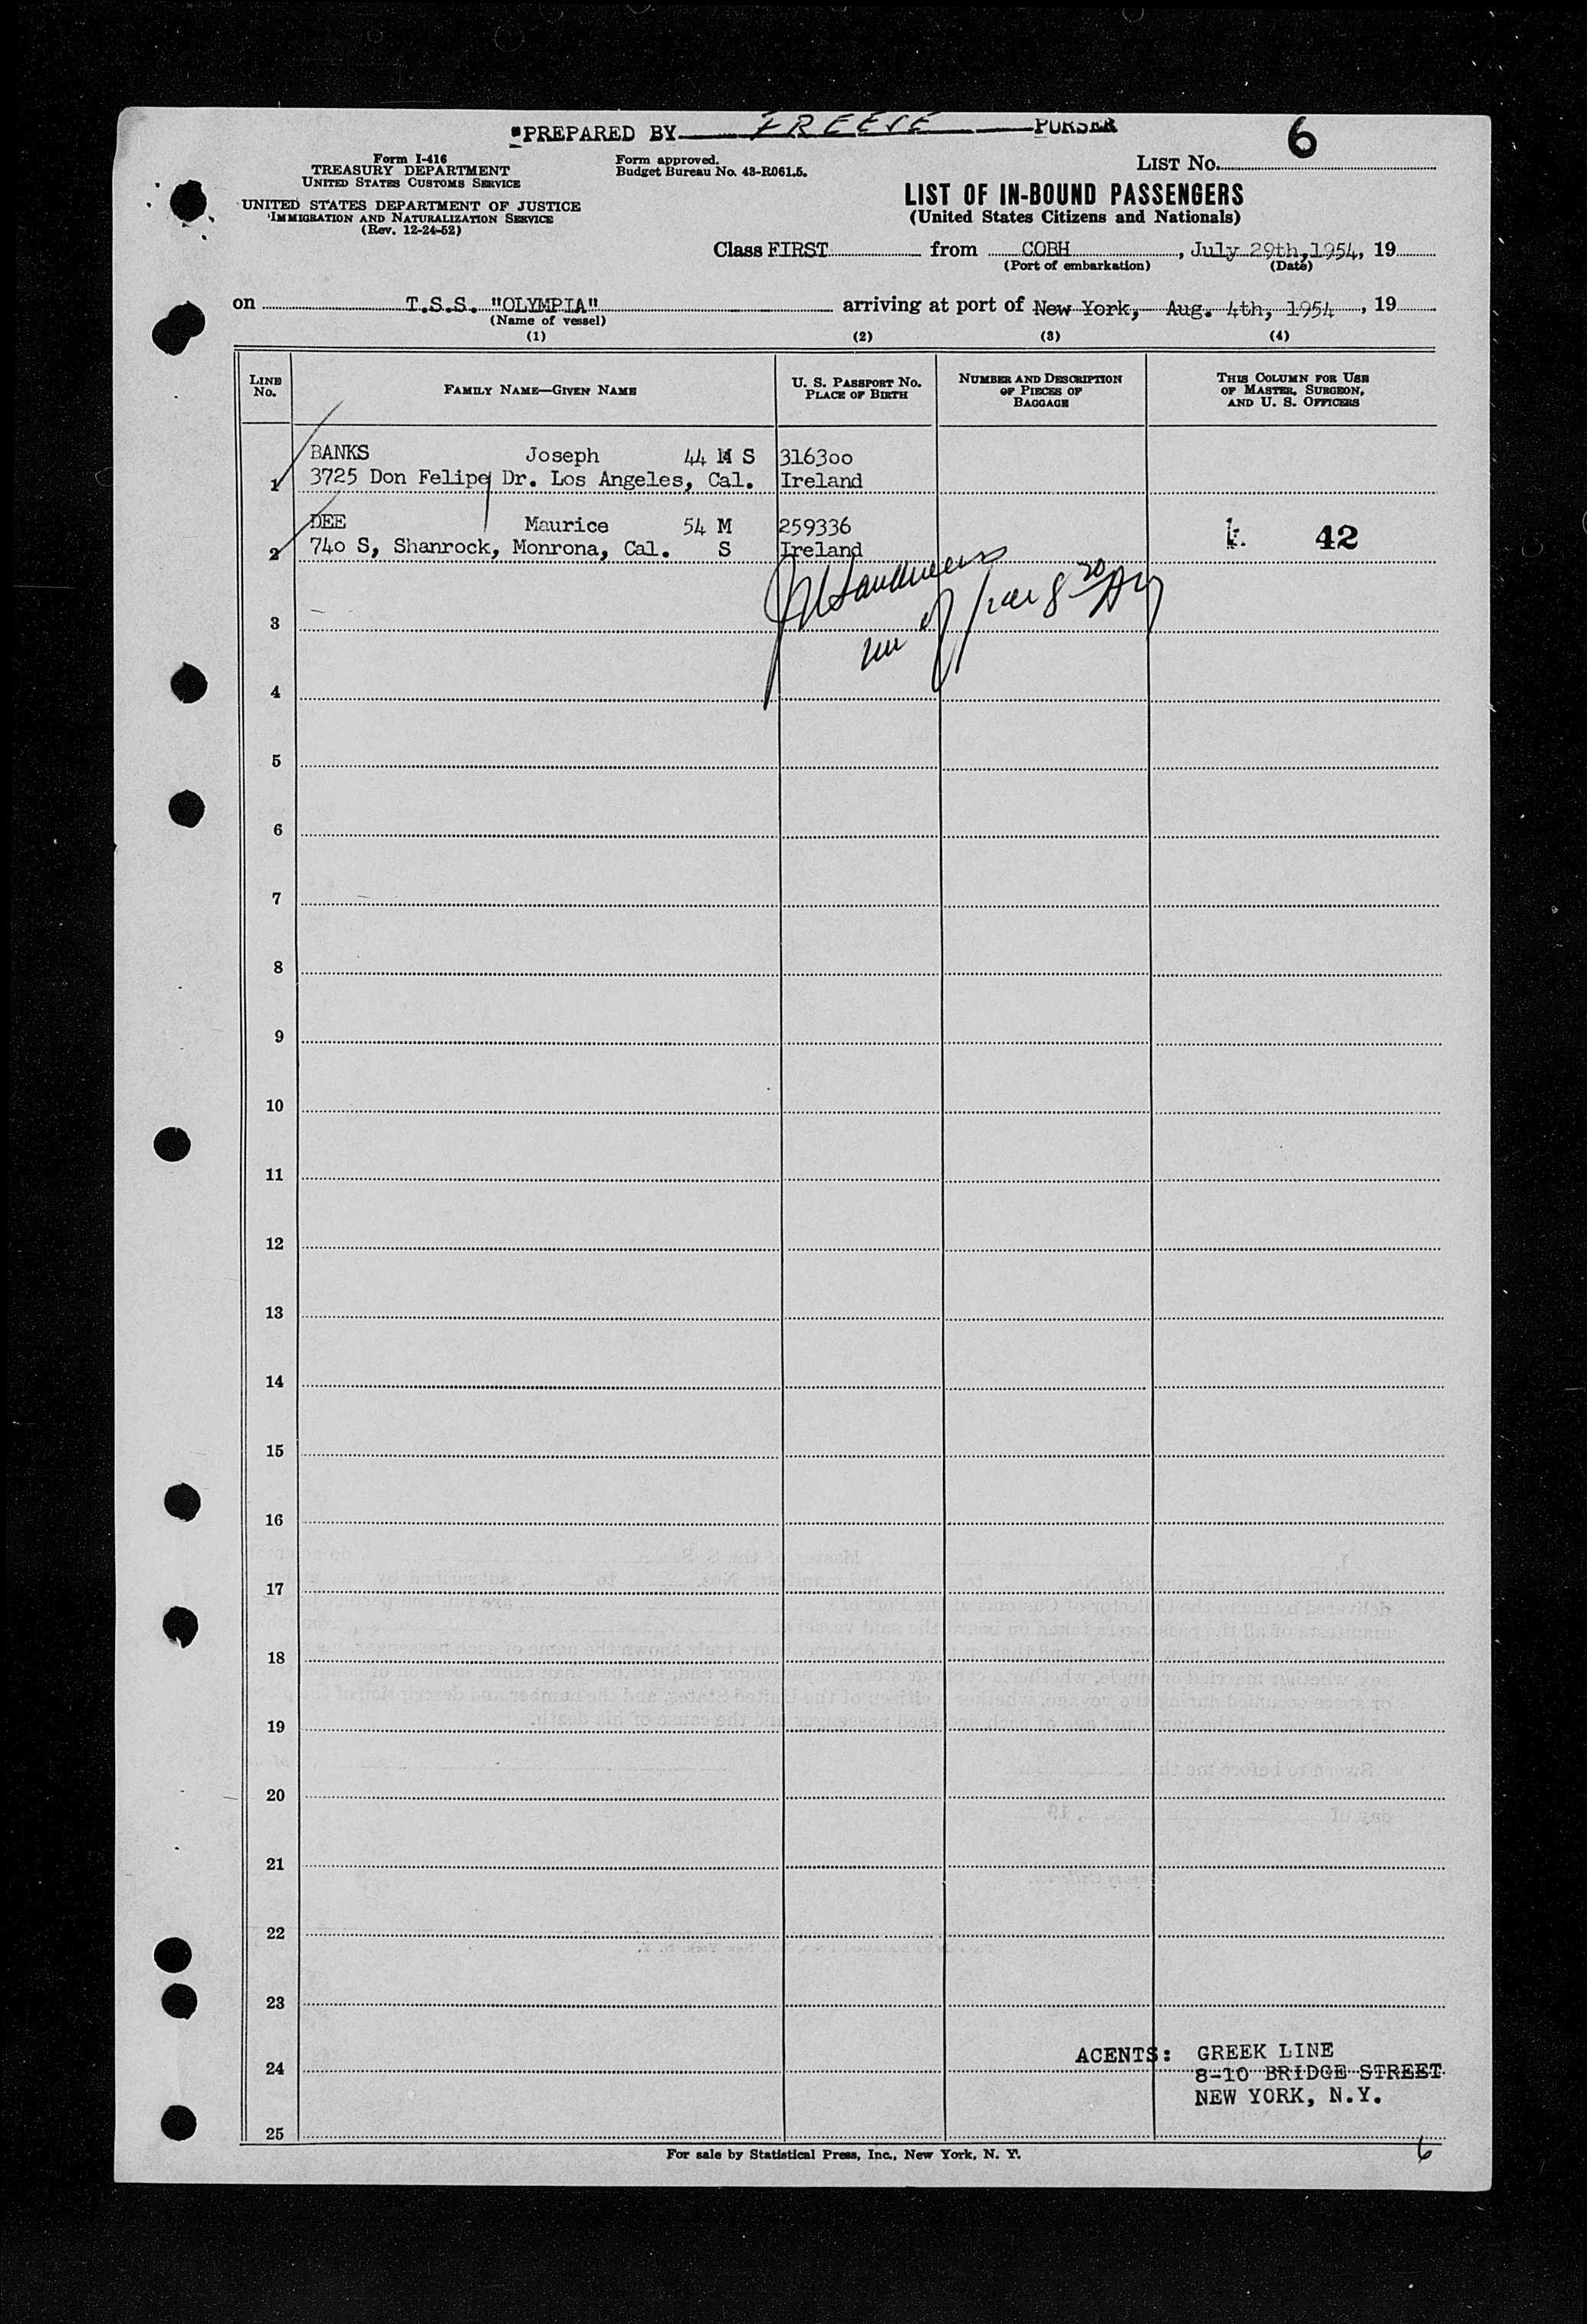 PREPARED BY FREEVE PURSER
6
Form I-416
TREASURY DEPARTMENT
UNITED STATES CUSTOMS SERVICE
UNITED STATES DEPARTMENT OF JUSTICE
IMMIGRATION AND NATURALIZATION SERVICE
(Rev. 12-24-52)
Form approved.
Budget Bureau No. 43-R061.5.
LIST No.
LIST OF IN-BOUND PASSENGERS
(United States Citizens and Nationals)
Class FIRST from COBH, July 29th, 1954, 19
(Port of embarkation) (Date)
on T.S.S. "OLYMPIA" arriving at port of New York, Aug. 4th, 1954, 19
(Name of vessel)
(1) (2) (3) (4)
LINE No.
FAMILY NAME—GIVEN NAME
U. S. PASSPORT No.
PLACE OF BIRTH
NUMBER AND DESCRIPTION
OF PIECES OF
BAGGAGE
THIS COLUMN FOR USE
OF MASTER, SURGEON,
AND U. S. OFFICERS
BANKS Joseph 44 M S 316300
1 3725 Don Felipe Dr. Los Angeles, Cal. Ireland
DEE Maurice 54 M 259336
2 740 S, Shanrock, Monrona, Cal. S Ireland
42
3
4
5
6
7
8
9
10
11
12
13
14
15
16
17
18
19
20
21
22
23
24
25
ACENTS: GREEK LINE
8-10 BRIDGE STREET
NEW YORK, N.Y.
For sale by Statistical Press, Inc., New York, N. Y.
6